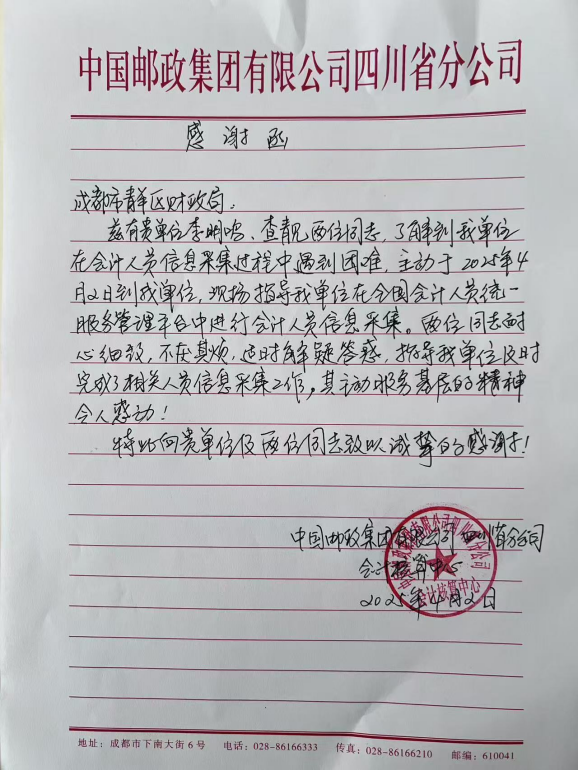 中国邮政集团有限公司四川省分公司
感谢函
成都市青羊区财政局:
兹有贵单位李明哈、查靓两位同志,了解到我单位
在会计人员信息采集过程中遇到困难,主动于2025年4
月2日到我单位,现场指导我单位在全国会计人员统一
服务管理平台中进行会计人员信息采集。两位同志耐
心细致,不厌其烦,适时解疑答惑,指导我单位及时
完成了相关人员信息采集工作,其主动服务基层的精神
令人感动!
特此向贵单位及两位同志致以诚挚的感谢!
中国邮政集团有限公司四川省分公司
会计核算中心
2025年4月2日
中国邮政集团有限公司四川省分公司
会计核算中心
地址:成都市下南大街6号 电话:028-86166333 传真:028-86166210 邮编:610041